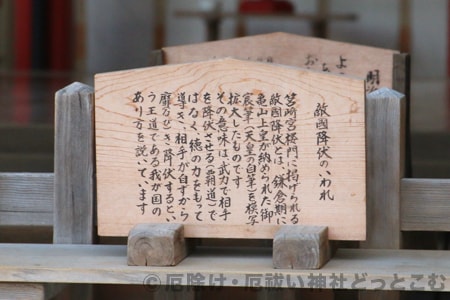 敵國降伏のいわれ
筥崎宮楼門に掲げられる
敵國降伏は、鎌倉期に
亀山上皇が納められた御
宸筆(天皇の自筆)を模写
拡大したものです
その意味は武力で相手
を降伏させる(覇道)で
はなく、徳の力をもって
導き、相手が自すから
靡きひき降伏するとい
う王道である我が國の
あり方を説いています
©厄除け・厄祓い神社どっとこむ